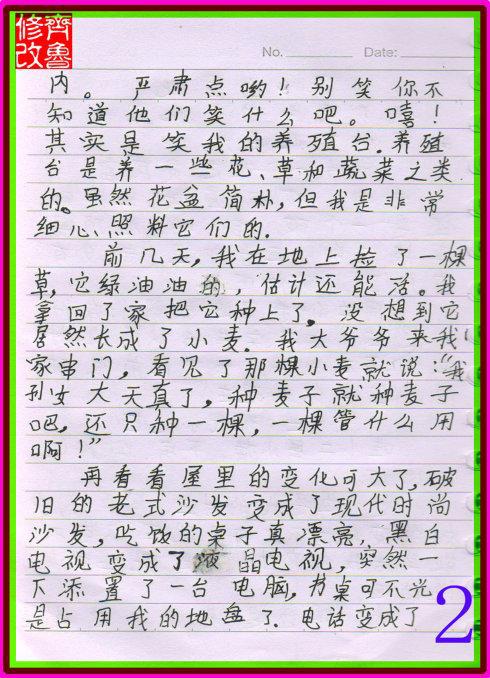 齐鲁
修改
No. Date:
内。严肃点哟！别笑你不
知道他们笑什么吧。嘻！
其实是笑我的养殖台.养殖
台是养一些花、草和蔬菜之类
的。虽然花盆简朴,但我是非常
细心照料它们的.
前几天,我在地上捡了一棵
草,它绿油油的,估计还能活。我
拿回了家把它种上了,没想到它
居然长成了小麦.我大爷爷来我
家串门,看见了那棵小麦就说:“我
孙女大天真了,种麦子就种麦子
吧,还只种一棵,一棵管什么用
啊!”
再看看屋里的变化可大了,破
旧的老式沙发变成了现代时尚
沙发,吃饭的桌子真漂亮,黑白
电视变成了液晶电视,突然一
下添置了一台电脑,书桌可不光
是占用我的地盘了.电话变成了
2